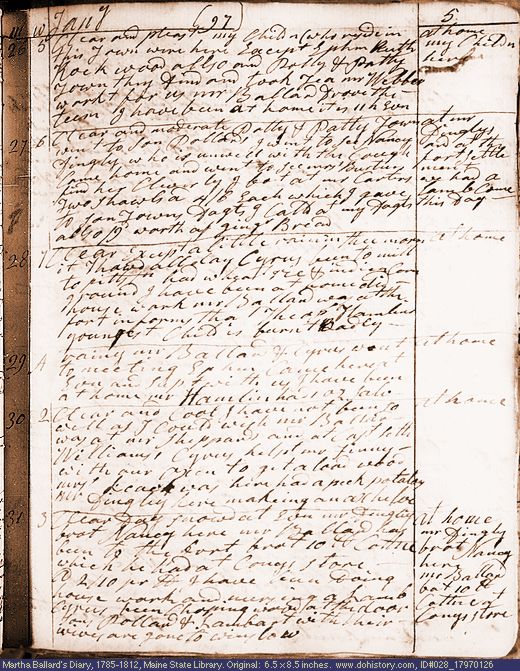 m w Jany (97) 5
26 5 Clear and pleast my Childn who reside in at home
this Town were here Except Ephm Ruth my Childn
Rockwood also and Polly & Patty here
Town they dind and took Tea mr Webber
workt for us mr Ballard drove the
team I have been at home it is 11 h Evn
27 6 Clear and moderate Polly & Patty Town at mr
went to son Pollards I went to see Nancy Dinglys
Dingly who is unwell with the Cough and at the
Came home and went to fort settle
find her Cleverly I bot at mr ment
Two shawls a 4/6 Each which I gave we had a
to son Towns Dagts I Calld at my Dagts Lamb Come
also 9 worth of ging Bread this Day
28 1 Clear Except a little rain in the morn at home
it thawd all day Cyrus been to mill
to pittss had wheat rie & indian Corn
ground I have been at home did
house work mr Ballard was at the
fort informs that Theops Hamlins
youngest Child is burnt Badly
29 rainy mr Ballard & Cyrus went at home
to meeting Ephm Came here at
Evn and supt with us I have been
at home mr Hamlin has
30 2 Clear and Cool I have not been so at home
well as I Coud wish mr Ballard
was at mr Sheppards and at Seth
Williams's Cyrus helpt mr Finney
with our oxen to get a load wood
mrs was here had a peck potatoes
mr Dingly here making an ax helve
31 3 Clear Day snowd at Evn mr Dingly at home
brot Nancy here mr Ballard has mr Dingly
been to the fort brot 10 lb Cotten brot Nancy
which he had at Conys store here
a 2/10 pr lb I have been doing mr Ballard
house work and nursing a Lamb bot 10 lb
Cyrus been Choping wood at the door Cotten at
sons Pollard & Lambart with their Conys store
wives are gone to winslow
Martha Ballard's Diary, 1785-1812, Maine State Library. Original: 6.5 x 8.5 inches. www.dohistory.com, ID#028_17970126